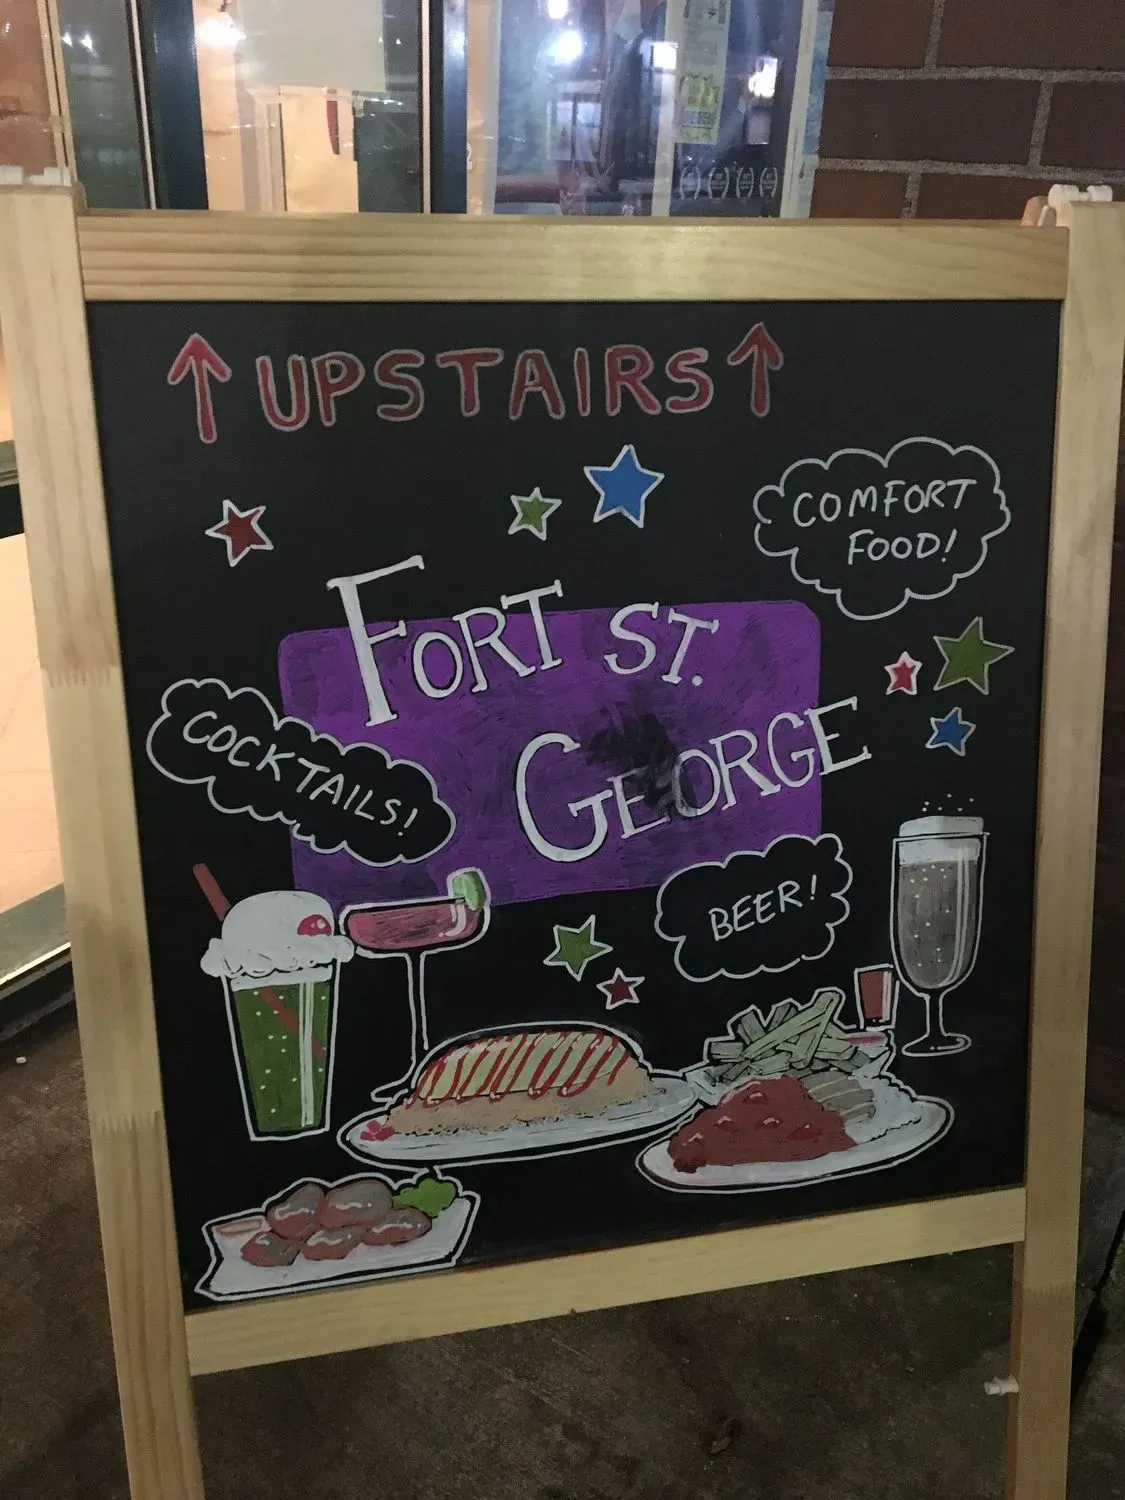 UPSTAIRS
COMFORT
FOOD!
FORT ST.
GEORGE
COCKTAILS!
BEER!